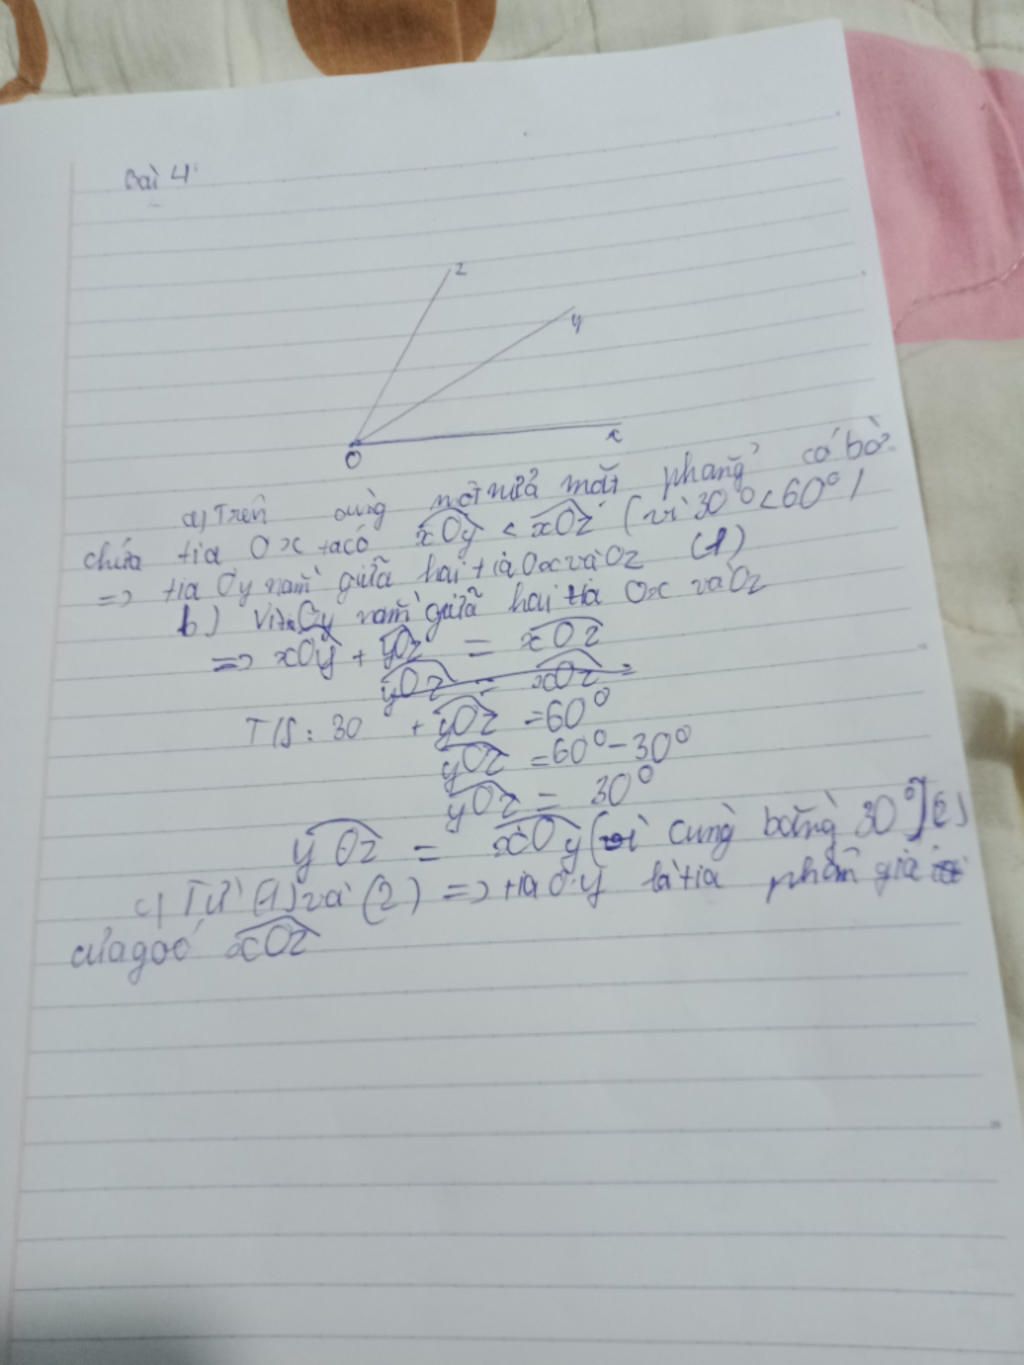 Bài 4:
z
y
x
O
a) Trên cùng một nửa mặt phẳng có bờ
chứa tia Ox ta có xOy < xOz (vì 30° < 60°)
=> tia Oy nằm giữa hai tia Ox và Oz (1)
b) Vì tia Oy nằm giữa hai tia Ox và Oz
=> xOy + yOz = xOz
yOz = xOz =
T/S: 30 + yOz = 60°
yOz = 60° - 30°
yOz = 30°
yOz = xOy (vì cùng bằng 30°) (2)
c) Từ (1) và (2) => tia Oy là tia phân giác
của góc xOz